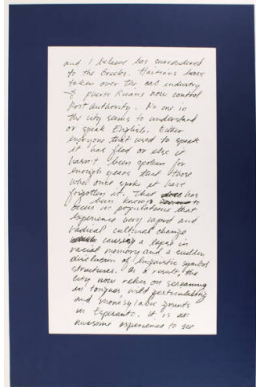 and I believe has surrendered
to the Greeks. Haitians have
taken over the cab industry
& Puerto Ricans now control
Port Authority. No one in
the city seems to understand
or speak English. Either
everyone that used to speak
it has fled or else it
hasn't been spoken for
enough years that those
who once spoke it have
forgotten it. That has
been known
occur in populations that
experience very rapid and
radical cultural change
causing a lapse in
racial memory and a sudden
dissolution of linguistic symbol
structures. As a result, the
city now relies on screaming
in tongues, wild gesticulating
and monosyllabic grunts
in Esperanto. It is an
awesome experience to see